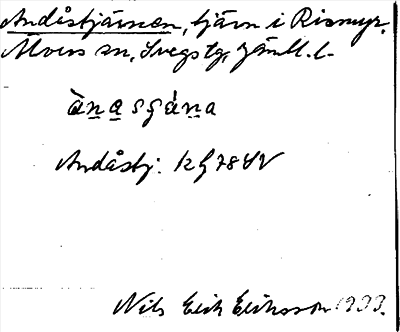 Andåstjärnen, tjärn i Rismyr,
Älvros sn, Svegs tg, Jämtl. l.
ànasgána
Andåstj: k G 78 SV
Nils Erik Eriksson 1933.